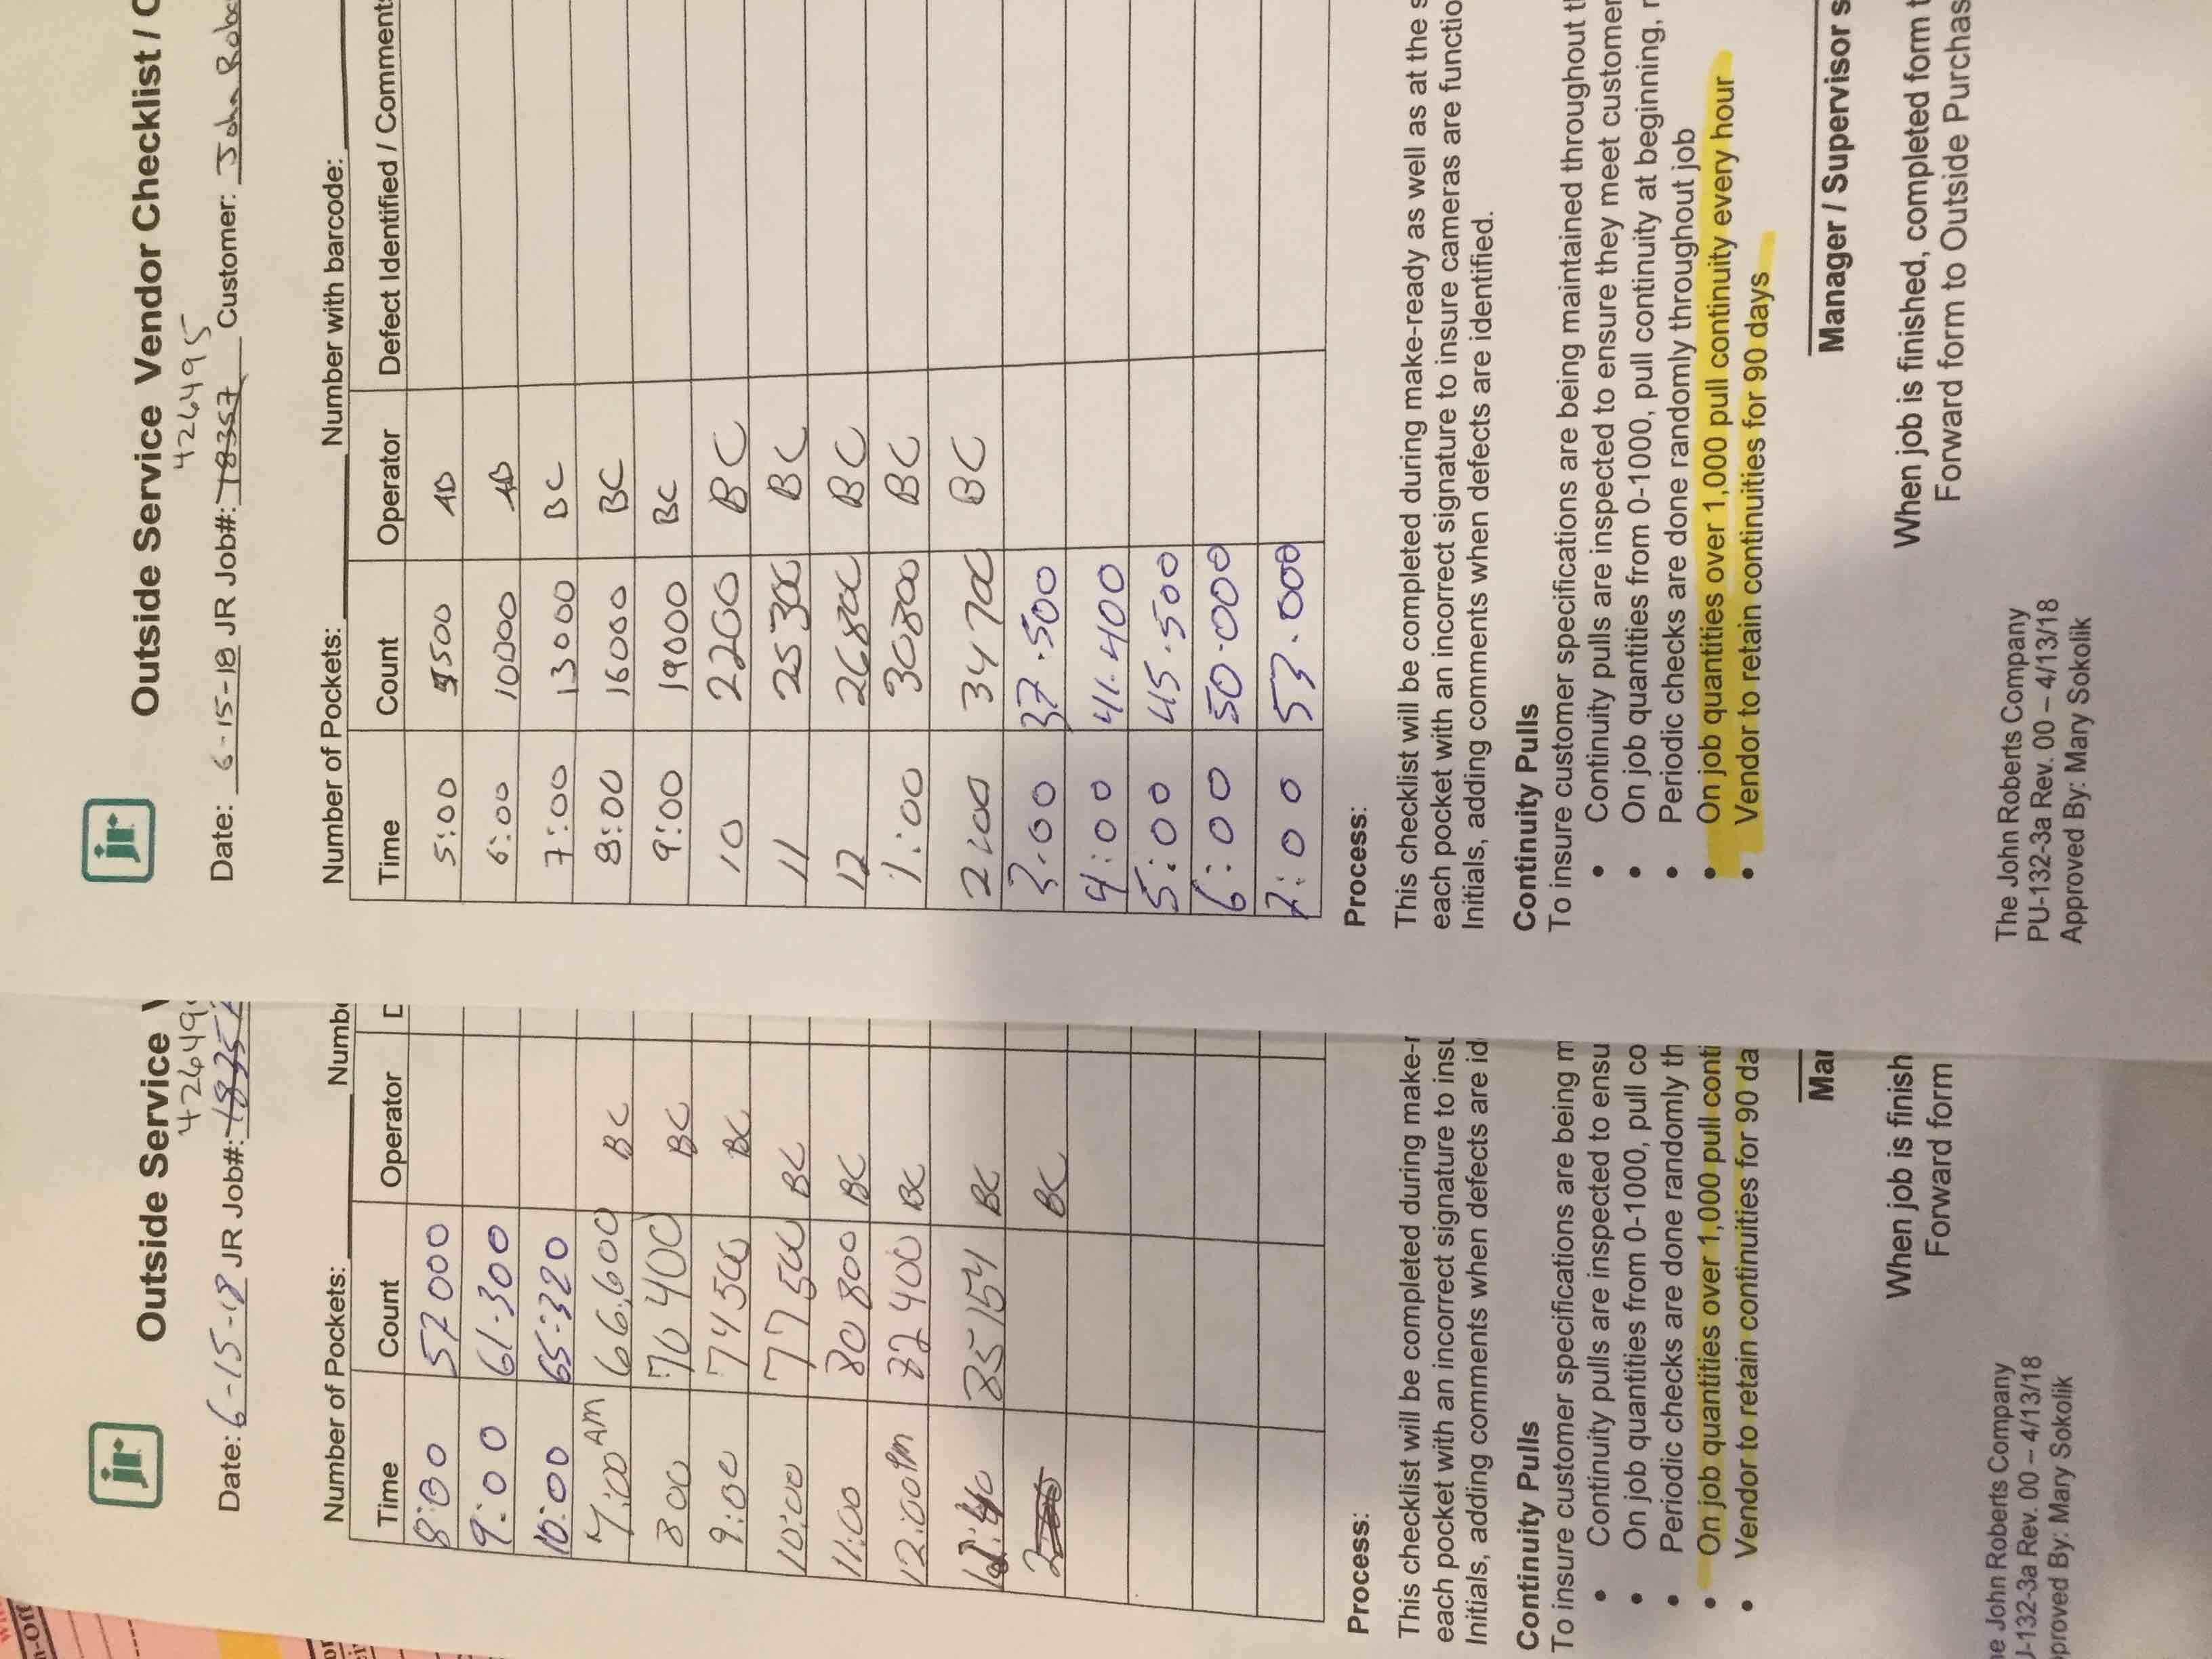 jr
Outside Service Vendor Checklist / C
426495
Date: 6-15-18 JR Job#: 18357 Customer: John Robe
Number of Pockets: Number with barcode:
Time Count Operator Defect Identified / Comment
5:00 5500 AD
6:00 10000 AD
7:00 13000 BC
8:00 16000 BC
9:00 19000 BC
10 2200 BC
11 25300 BC
12 26800 BC
1:00 30800 BC
2:00 34700 BC
3.00 37.500
4:00 41.400
5:00 45.500
6:00 50.000
7:00 53.000
Process:
This checklist will be completed during make-ready as well as at the s
each pocket with an incorrect signature to insure cameras are functio
Initials, adding comments when defects are identified.
Continuity Pulls
To insure customer specifications are being maintained throughout t
• Continuity pulls are inspected to ensure they meet customer
• On job quantities from 0-1000, pull continuity at beginning, r
• Periodic checks are done randomly throughout job
• On job quantities over 1,000 pull continuity every hour
• Vendor to retain continuities for 90 days
Manager / Supervisor s
When job is finished, completed form t
Forward form to Outside Purchas
The John Roberts Company
PU-132-3a Rev. 00 – 4/13/18
Approved By: Mary Sokolik
jr
Outside Service V
42649
Date: 6-15-18 JR Job#: 1835
Number of Pockets: Numb
Time Count Operator D
8:00 57000
9:00 61.300
10:00 65:320
7:00 AM 66,600 BC
8 00 70400 BC
9:00 74500 BC
10:00 77500 BC
11:00 80800 BC
12:00 pm 82400 BC
85154 BC
BC
Process:
This checklist will be completed during make-r
each pocket with an incorrect signature to insu
Initials, adding comments when defects are id
Continuity Pulls
To insure customer specifications are being m
• Continuity pulls are inspected to ensu
• On job quantities from 0-1000, pull co
• Periodic checks are done randomly th
• On job quantities over 1,000 pull conti
• Vendor to retain continuities for 90 da
Mar
When job is finish
Forward form
he John Roberts Company
U-132-3a Rev. 00 – 4/13/18
pproved By: Mary Sokolik